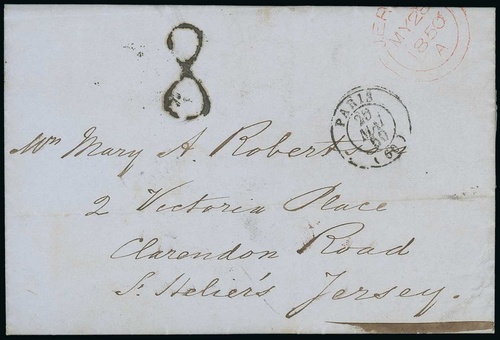 8
JER
MY 2
185
A
PARIS
25
MAI
(60)
Mrs Mary A. Robertson
2 Victoria Place
Clarendon Road
St. Helier's Jersey.